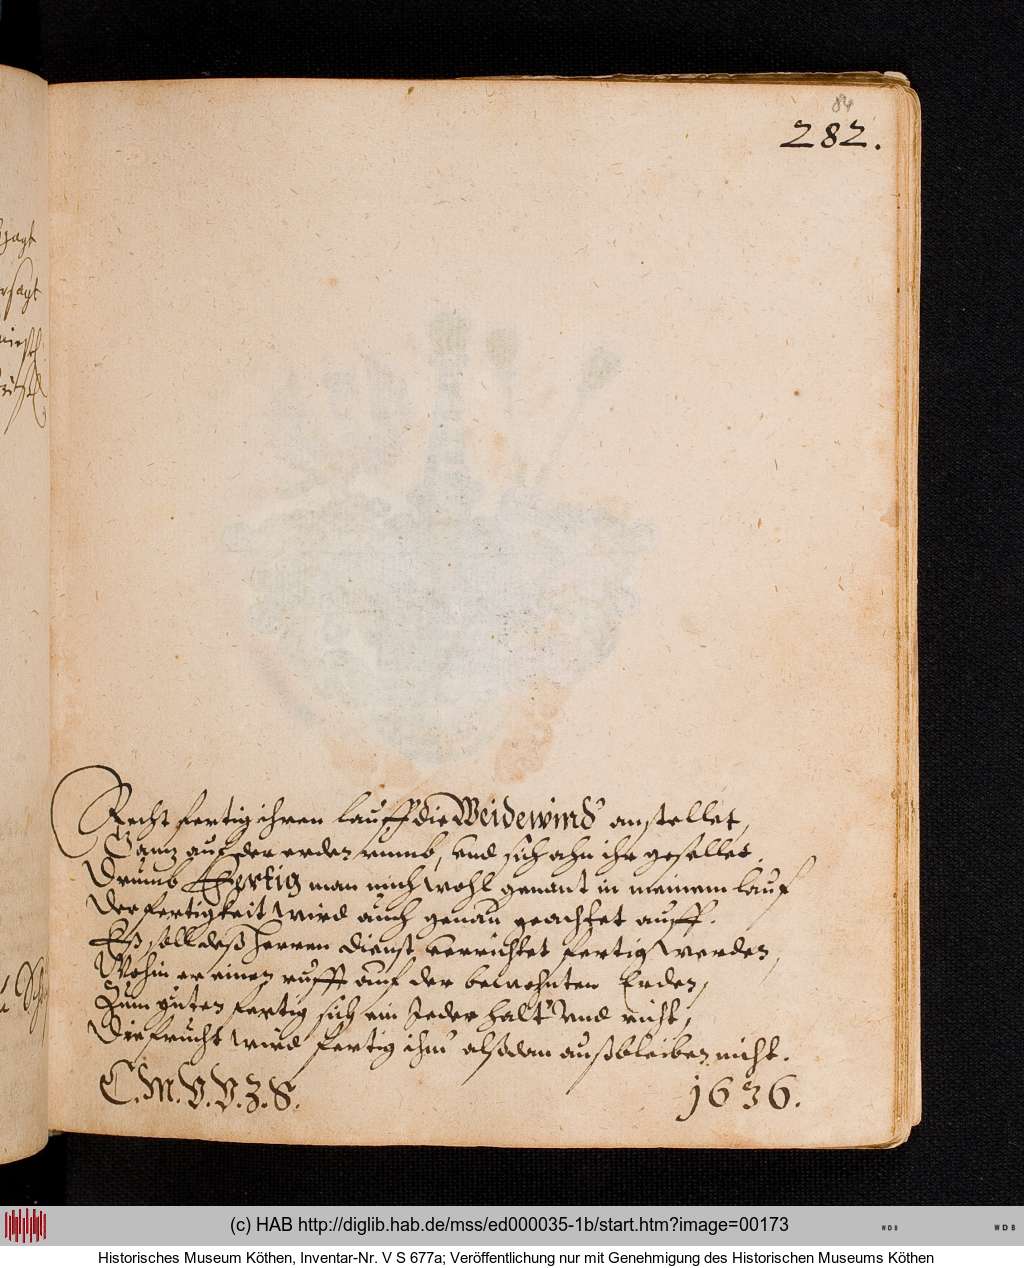 84
282.
Recht fertig ihren lauff die Weidewind anstellet,
Gantz auf der erden rumb, und sich ahn ihr gesellet.
Drumb Fertig man mich wohl genant in meinem lauf
Der fertigkeit wird auch genau geachtet auff.
Eß soll deß Herren dienst verrichtet fertig werden,
Wohin er einen rufft auf der bewohnten Erden,
Zum guten fertig sich ein Jeder halt und richt,
Die frucht wird fertig ihm alßdan außbleiben nicht.
C.M.V.V.Z.S.
1636.
(c) HAB http://diglib.hab.de/mss/ed000035-1b/start.htm?image=00173
WDB
WDB
Historisches Museum Köthen, Inventar-Nr. V S 677a; Veröffentlichung nur mit Genehmigung des Historischen Museums Köthen